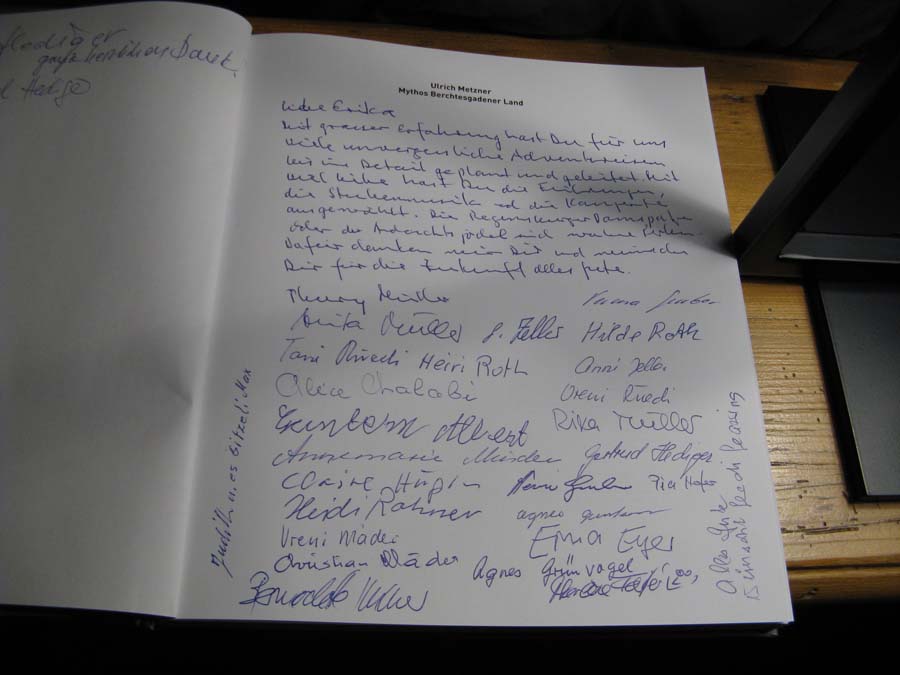 Dank
Ulrich Metzner
Mythos Berchtesgadener Land
Liebe Erika
Mit grosser Erfahrung hast Du für uns
viele unvergessliche Adventsreisen
bis ins Detail geplant und geleitet. Mit
viel Liebe hast Du die Führungen,
die Stubenmusik und die Konzerte
ausgewählt. Die Regensburger Domspatzen
oder der Andachtsjodel sind
Dafür danken wir Dir und wünschen
Dir für die Zukunft alles Gute.
Müller
Anita Müller J. Zeller Hilde Roth
Toni Rüedi Heiri Roth Anni Zeller
Alice Chalabi Vreni Rüedi
Guntern Albert Rika Müller
Annemarie Minder Gertrud Hediger
Claire Hügin Pia Hofer
Heidi Rohner agnes
Vreni Mäder Erna Eyer
Christian Mäder Agnes Grünvogel
Bernadette
Judith u. es bitzeli Max
Alles Gute